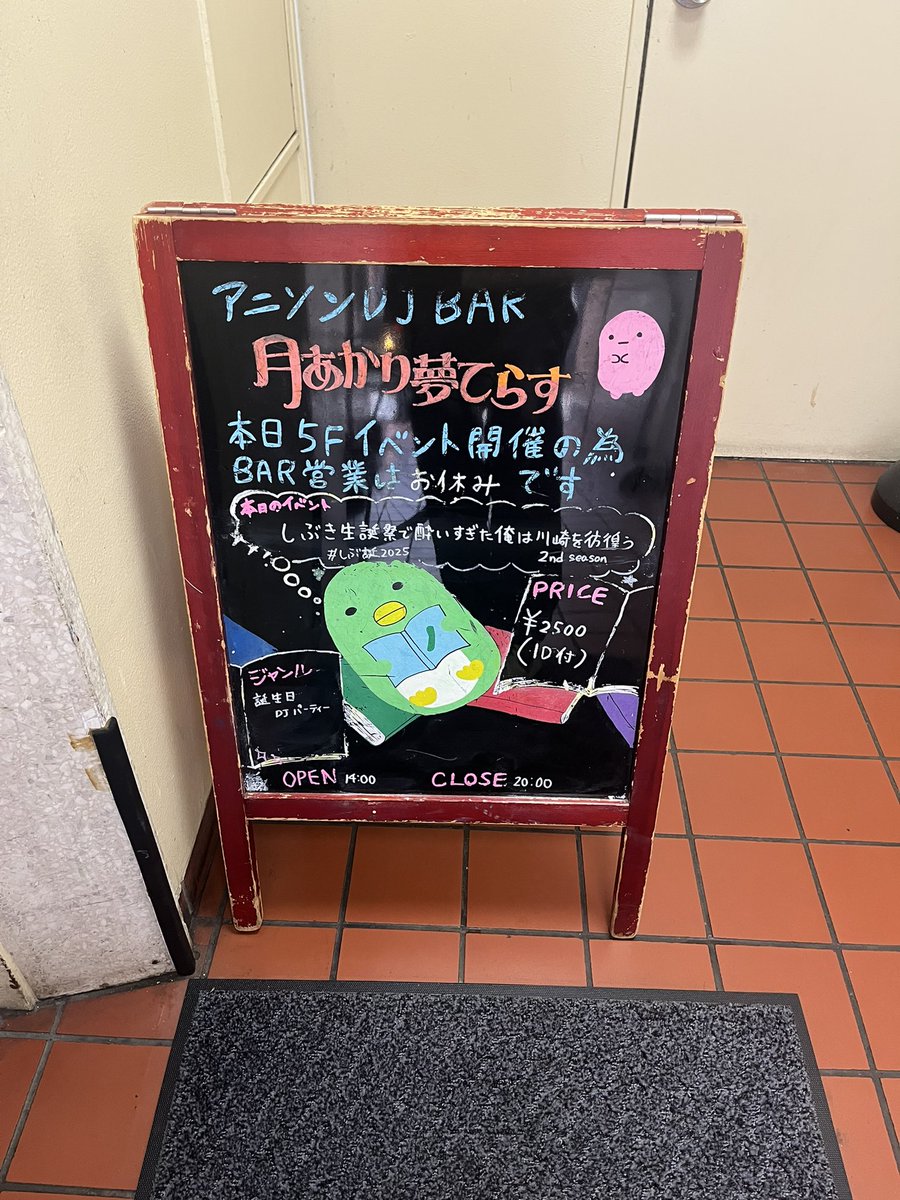 アニソンDJ BAR
月あかり夢てらす
本日5Fイベント開催の為
BAR営業はお休みです
本日のイベント
しぶき生誕祭で酔いすぎた俺は川崎を彷徨う
2nd season
PRICE
¥2500
(1D付)
ジャンル
誕生日
DJパーティー
OPEN 14:00 CLOSE 20:00